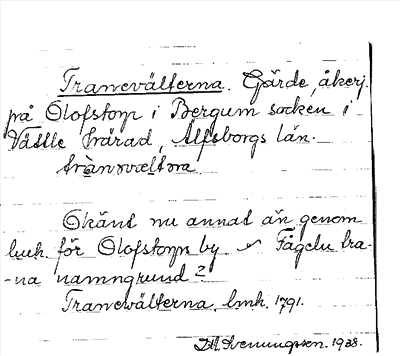 Tranevälterna. Gärde, åkerj.
på Olofstorp i Bergum socken i
Vättle härad, Älfsborgs län.
trànevæltɷra
Okänt nu annat än genom
lmh. för Olofstorps by Fågeln tra-
-na namngrund?
Tranevälterna, lmh. 1791.
Svenungsson. 1938.